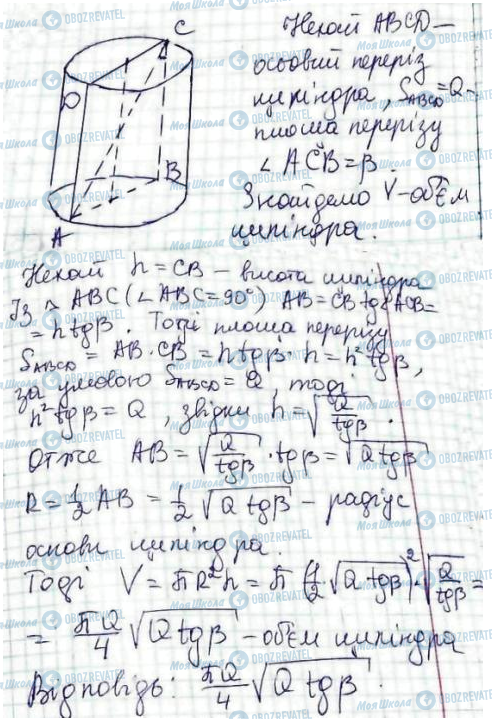 C
D
B
A
Нехай ABCD –
осьовий переріз
циліндра, S_ABCD = Q –
площа перерізу
∠ ACB = β.
Знайдемо V – об'єм
циліндра.
Нехай h = CB – висота циліндра
Із △ ABC (∠ ABC = 90°) AB = CB tg ACB =
= h tg β. Тоді площа перерізу
S_ABCD = AB · CB = h tg β · h = h² tg β,
за умовою S_ABCD = Q, тоді
h² tg β = Q, звідки h = √(Q/tg β).
Отже AB = √(Q/tg β) · tg β = √(Q tg β)
R = 1/2 AB = 1/2 √(Q tg β) – радіус
основи циліндра.
Тоді V = πR²h = π (1/2 · √(Q tg β))² · √(Q/tg β) =
= πQ/4 √(Q tg β) – об'єм циліндра
Відповідь: πQ/4 √(Q tg β).
Моя Школа
OBOZREVATEL